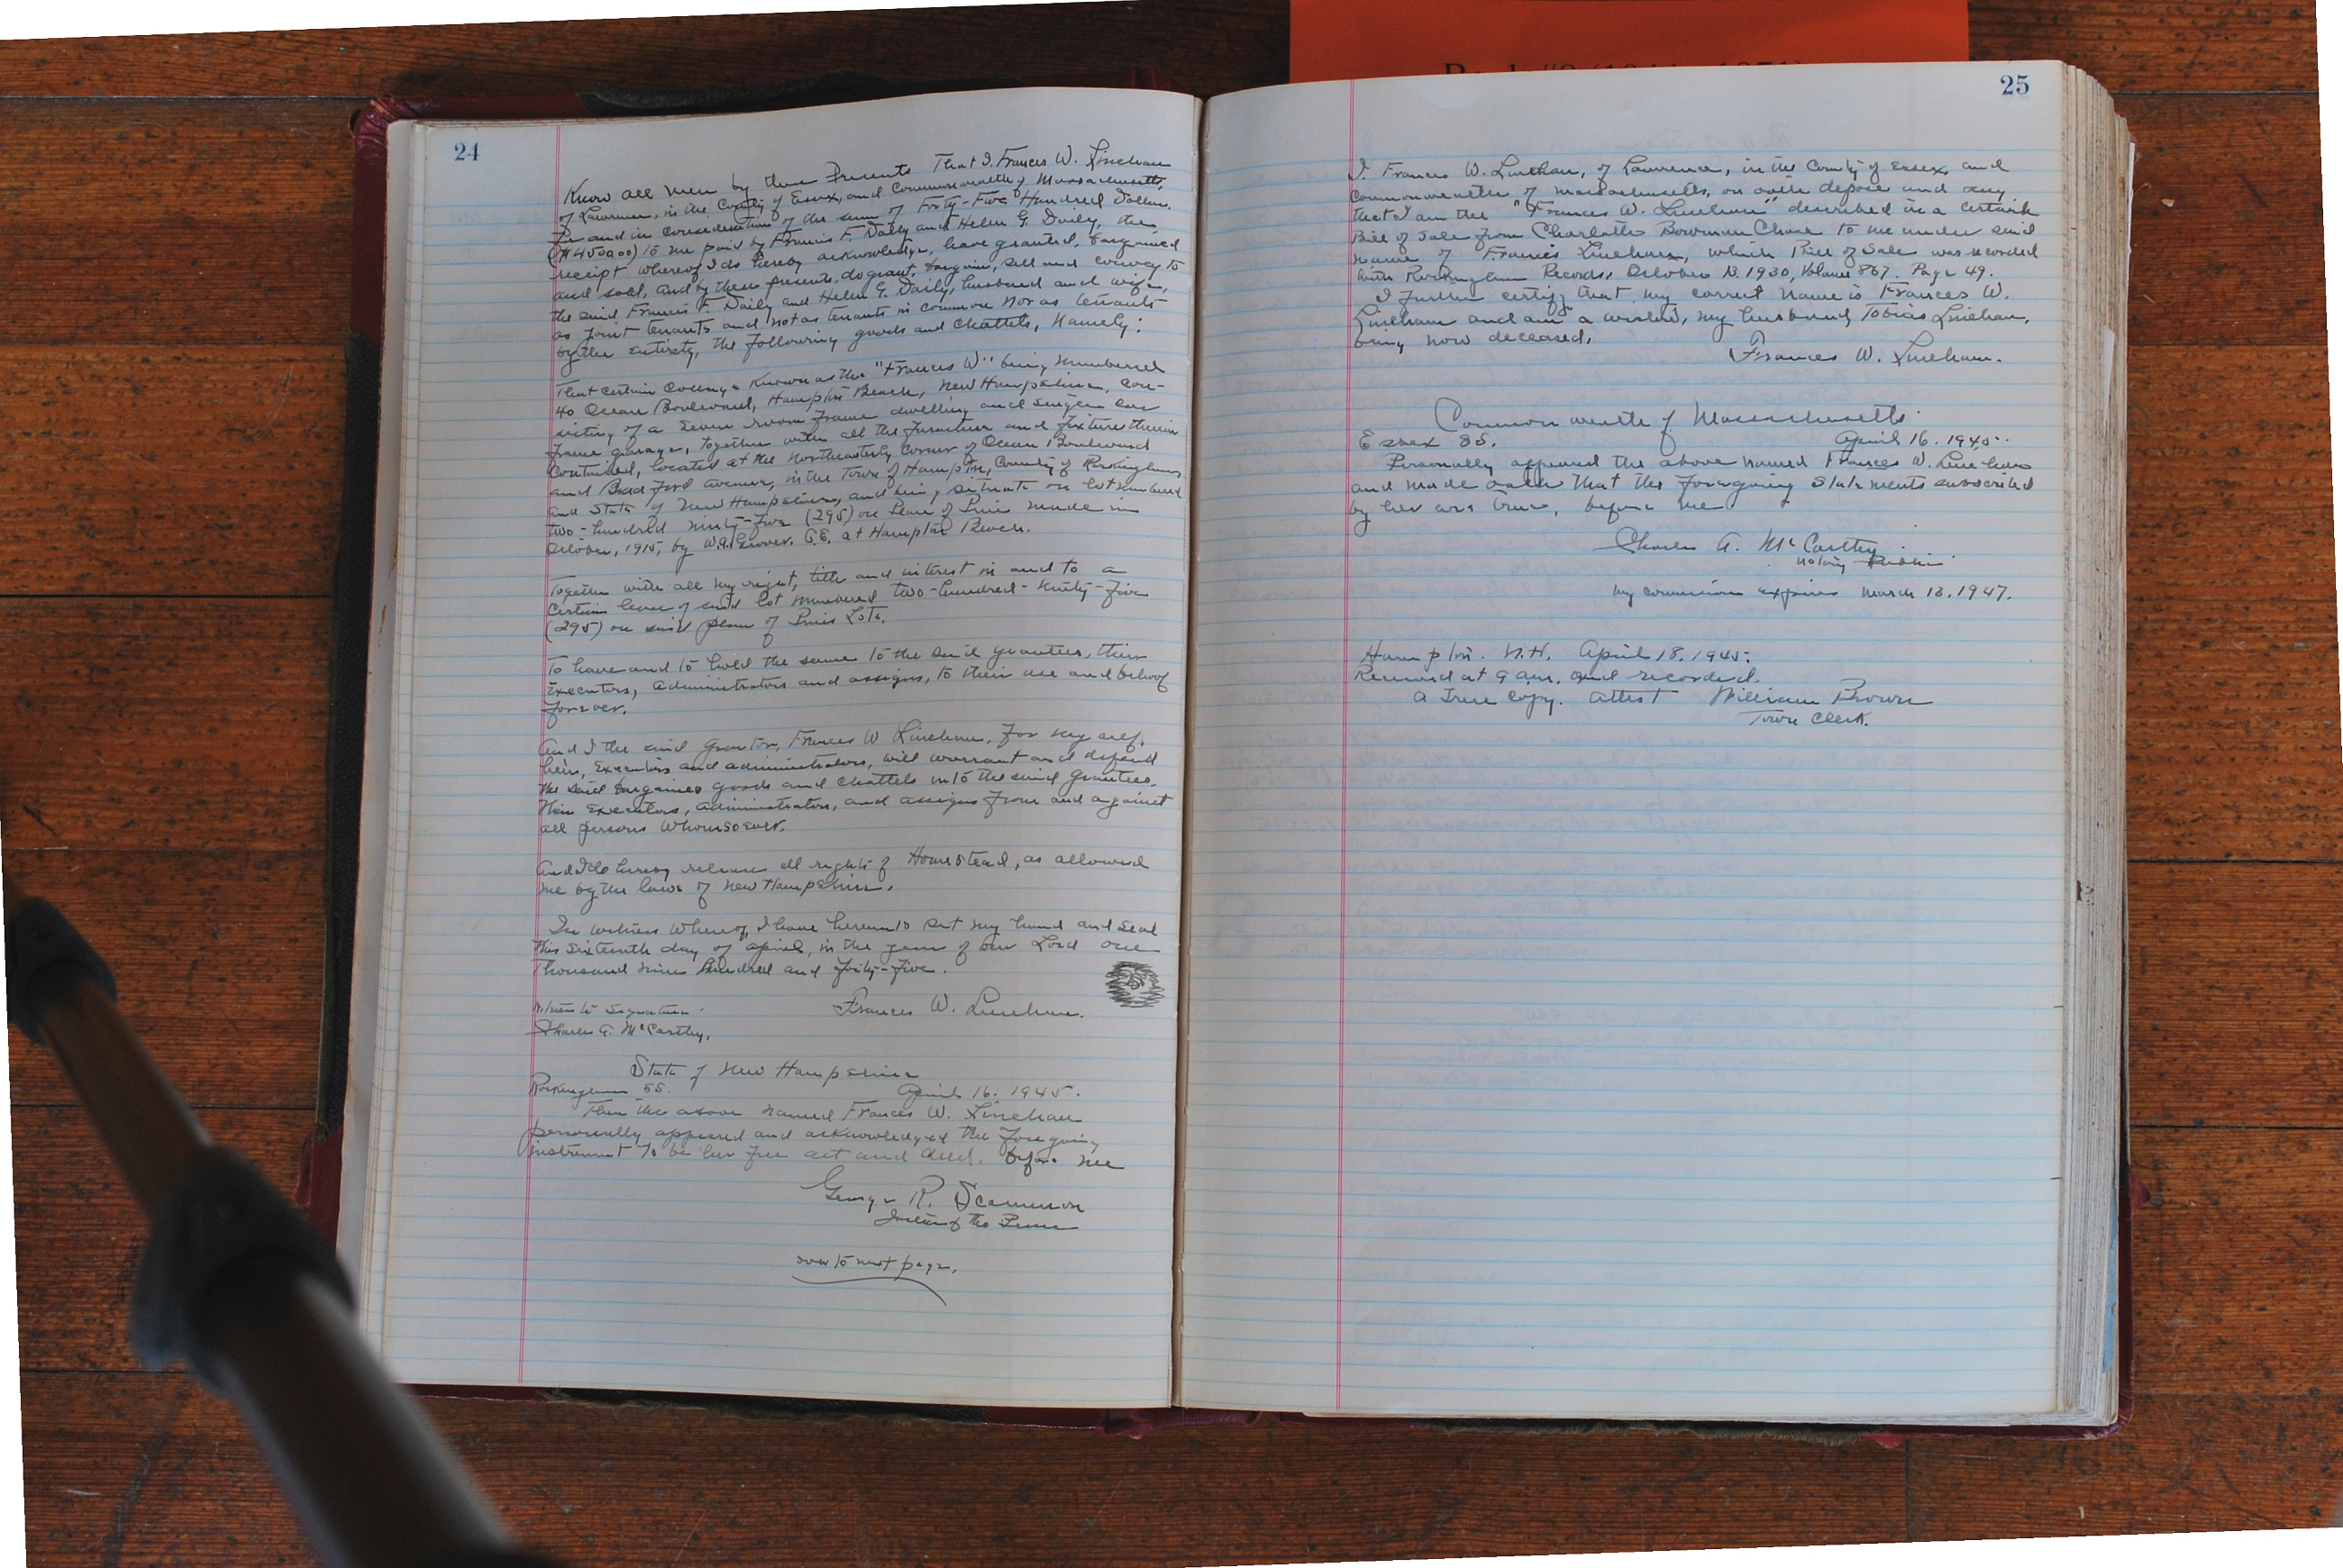 24
Know all men by these Presents That I, Frances W. Linehan
of Lawrence, in the County of Essex, and Commonwealth of Massachusetts,
for and in consideration of the sum of Forty-Five Hundred Dollars.
($4500.00) to me paid by Francis F. Daily and Helen G. Daily, the
receipt whereof I do hereby acknowledge, have granted, bargained
and sold, and by these presents, do grant, bargain, sell and convey to
the said Francis F. Daily and Helen G. Daily, husband and wife,
as joint tenants and not as tenants in common nor as tenants
by the entirety, the following goods and chattels, namely:
That certain cottage known as the "Frances W" being numbered
40 Ocean Boulevard, Hampton Beach, New Hampshire, con-
sisting of a seven room frame dwelling and single car
frame garage, together with all the furniture and fixtures therein
contained, located at the Northeasterly corner of Ocean Boulevard
and Bradford Avenue, in the Town of Hampton, County of Rockingham,
and State of New Hampshire, and being situate on lot numbered
two-hundred ninety-five (295) on Plan of Lots made in
October, 1915, by W.A. Grover. C.E. at Hampton River.
Together with all my right, title and interest in and to a
certain lease of said lot numbered two-hundred-ninety-five
(295) on said plan of Lots.
To have and to hold the same to the said grantees, their
Executors, administrators and assigns, to their use and behoof
forever.
And I the said Grantor, Frances W Linehan, for myself,
heirs, Executors and administrators, will warrant and defend
the said bargained goods and chattels unto the said Grantees.
their Executors, administrators, and assigns from and against
all persons whomsoever.
And I do hereby release all rights of Homestead, as allowed
me by the laws of New Hampshire.
In witness whereof, I have hereunto set my hand and seal
this sixteenth day of April, in the year of our Lord one
thousand nine hundred and forty-five.
Witness to Signature.
Frances W. Linehan.
Charles A. McCarthy,
State of New Hampshire
Rockingham SS. April 16. 1945.
Then the above named Frances W. Linehan
personally appeared and acknowledged the foregoing
instrument to be her free act and deed. Before me
George R. Scammon
Justice of the Peace
over to next page.
25
I, Frances W. Linehan, of Lawrence, in the County of Essex, and
Commonwealth of Massachusetts, on oath depose and say
that I am the "Frances W. Linehan" described in a certain
Bill of Sale from Charlotte Bowman Chase to me under said
name of Francis Linehan, which Bill of Sale was recorded
with Rockingham Records, October 13. 1930, Volume 867. Page 49.
I further certify that my correct name is Frances W.
Linehan and am a widow, my husband, Tobias Linehan,
being now deceased.
Frances W. Linehan.
Commonwealth of Massachusetts.
Essex SS. April 16. 1945.
Personally appeared the above named Frances W. Linehan
and made oath that the foregoing statements subscribed
by her are true, before me
Charles A. McCarthy
Notary Public
My commission expires March 13. 1947.
Hampton. N.H. April 18. 1945.
Received at 9 am. and recorded.
A true copy. Attest William Brown
Town Clerk.